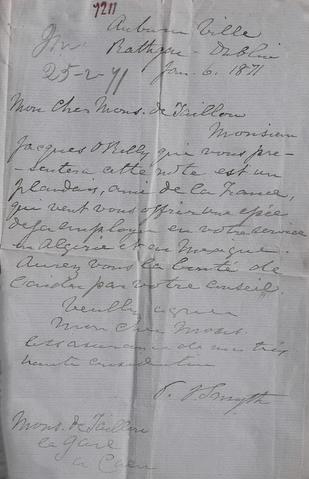 7211
Auburn Ville
Rathgar - Dublin
Jan. 6. 1871
25-2-71
Mon Cher Mons. de Taillon
Monsieur
Jacques O'Reilly qui vous pre-
sentera cette note est un
Irlandais, ami de la France,
qui veut vous offrir une épée
deja employée en votre service
en Algérie et en Mexique.
Aurez vous la bonté de
l'aider par votre conseil.
Veuillez agréer
Mon cher Mons.
les assurances de ma très
haute consideration
P. J. Smyth
Mons. de Taillon
la Gare
a Caen